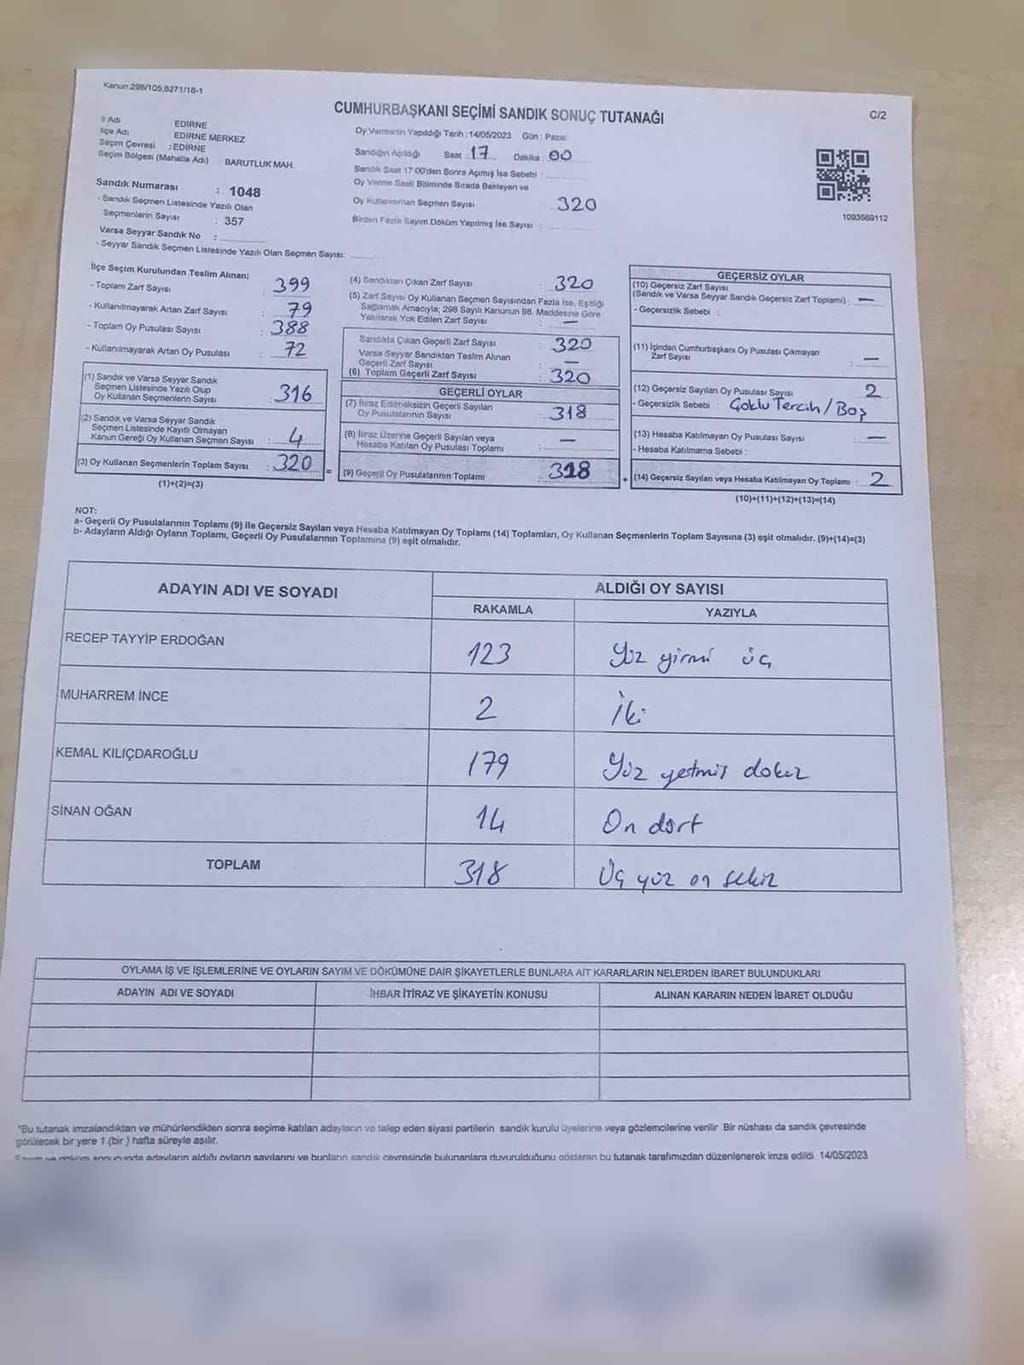 Kanun:298/105,6271/18-1
CUMHURBAŞKANI SEÇİMİ SANDIK SONUÇ TUTANAĞI
C/2
İl Adı : EDİRNE
İlçe Adı : EDİRNE MERKEZ
Seçim Çevresi : EDİRNE
Seçim Bölgesi (Mahalle Adı) : BARUTLUK MAH.
Sandık Numarası : 1048
- Sandık Seçmen Listesinde Yazılı Olan
Seçmenlerin Sayısı : 357
Varsa Seyyar Sandık No :
- Seyyar Sandık Seçmen Listesinde Yazılı Olan Seçmen Sayısı:
Oy Vermenin Yapıldığı Tarih :14/05/2023 Gün : Pazar
Sandığın Açıldığı Saat : 17 Dakika : 00
Sandık Saat 17:00'den Sonra Açılmış İse Sebebi :
Oy Verme Saati Bitiminde Sırada Bekleyen ve
Oy Kullandırılan Seçmen Sayısı : 320
Birden Fazla Sayım Döküm Yapılmış İse Sayısı :
1093569112
İlçe Seçim Kurulundan Teslim Alınan;
- Toplam Zarf Sayısı : 399
- Kullanılmayarak Artan Zarf Sayısı : 79
- Toplam Oy Pusulası Sayısı : 388
- Kullanılmayarak Artan Oy Pusulası : 72
(1) Sandık ve Varsa Seyyar Sandık
Seçmen Listesinde Yazılı Olup
Oy Kullanan Seçmenlerin Sayısı : 316
(2) Sandık ve Varsa Seyyar Sandık
Seçmen Listesinde Kayıtlı Olmayan
Kanun Gereği Oy Kullanan Seçmen Sayısı : 4
(3) Oy Kullanan Seçmenlerin Toplam Sayısı : 320
(1)+(2)=(3)
=
(4) Sandıktan Çıkan Zarf Sayısı : 320
(5) Zarf Sayısı Oy Kullanan Seçmen Sayısından Fazla İse, Eşitliği
Sağlamak Amacıyla; 298 Sayılı Kanunun 98. Maddesine Göre
Yakılarak Yok Edilen Zarf Sayısı : —
Sandıkta Çıkan Geçerli Zarf Sayısı : 320
Varsa Seyyar Sandıktan Teslim Alınan
Geçerli Zarf Sayısı : —
(6) Toplam Geçerli Zarf Sayısı : 320
GEÇERLİ OYLAR
(7) İtiraz Edilmeksizin Geçerli Sayılan
Oy Pusulalarının Sayısı : 318
(8) İtiraz Üzerine Geçerli Sayılan veya
Hesaba Katılan Oy Pusulası Toplamı : —
(9) Geçerli Oy Pusulalarının Toplamı : 318
+
GEÇERSİZ OYLAR
(10) Geçersiz Zarf Sayısı
(Sandık ve Varsa Seyyar Sandık Geçersiz Zarf Toplamı) : —
- Geçersizlik Sebebi :
(11) İçinden Cumhurbaşkanı Oy Pusulası Çıkmayan
Zarf Sayısı : —
(12) Geçersiz Sayılan Oy Pusulası Sayısı : 2
- Geçersizlik Sebebi : Çoklu Tercih / Boş
(13) Hesaba Katılmayan Oy Pusulası Sayısı : —
- Hesaba Katılmama Sebebi :
(14) Geçersiz Sayılan veya Hesaba Katılmayan Oy Toplamı : 2
(10)+(11)+(12)+(13)=(14)
NOT:
a- Geçerli Oy Pusulalarının Toplamı (9) ile Geçersiz Sayılan veya Hesaba Katılmayan Oy Toplamı (14) Toplamları, Oy Kullanan Seçmenlerin Toplam Sayısına (3) eşit olmalıdır. (9)+(14)=(3)
b- Adayların Aldığı Oyların Toplamı, Geçerli Oy Pusulalarının Toplamına (9) eşit olmalıdır.
ADAYIN ADI VE SOYADI
ALDIĞI OY SAYISI
RAKAMLA YAZIYLA
RECEP TAYYİP ERDOĞAN 123 Yüz yirmi üç
MUHARREM İNCE 2 İki
KEMAL KILIÇDAROĞLU 179 Yüz yetmiş dokuz
SİNAN OĞAN 14 On dört
TOPLAM 318 Üç yüz on sekiz
OYLAMA İŞ VE İŞLEMLERİNE VE OYLARIN SAYIM VE DÖKÜMÜNE DAİR ŞİKAYETLERLE BUNLARA AİT KARARLARIN NELERDEN İBARET BULUNDUKLARI
ADAYIN ADI VE SOYADI İHBAR İTİRAZ VE ŞİKAYETİN KONUSU ALINAN KARARIN NEDEN İBARET OLDUĞU
*Bu tutanak imzalandıktan ve mühürlendikten sonra seçime katılan adayların ve talep eden siyasi partilerin sandık kurulu üyelerine veya gözlemcilerine verilir. Bir nüshası da sandık çevresinde
görülecek bir yere 1 (bir ) hafta süreyle asılır.
Sayım ve döküm sonucunda adayların aldığı oyların sayılarını ve bunların sandık çevresinde bulunanlara duyurulduğunu gösteren bu tutanak tarafımızdan düzenlenerek imza edildi. 14/05/2023